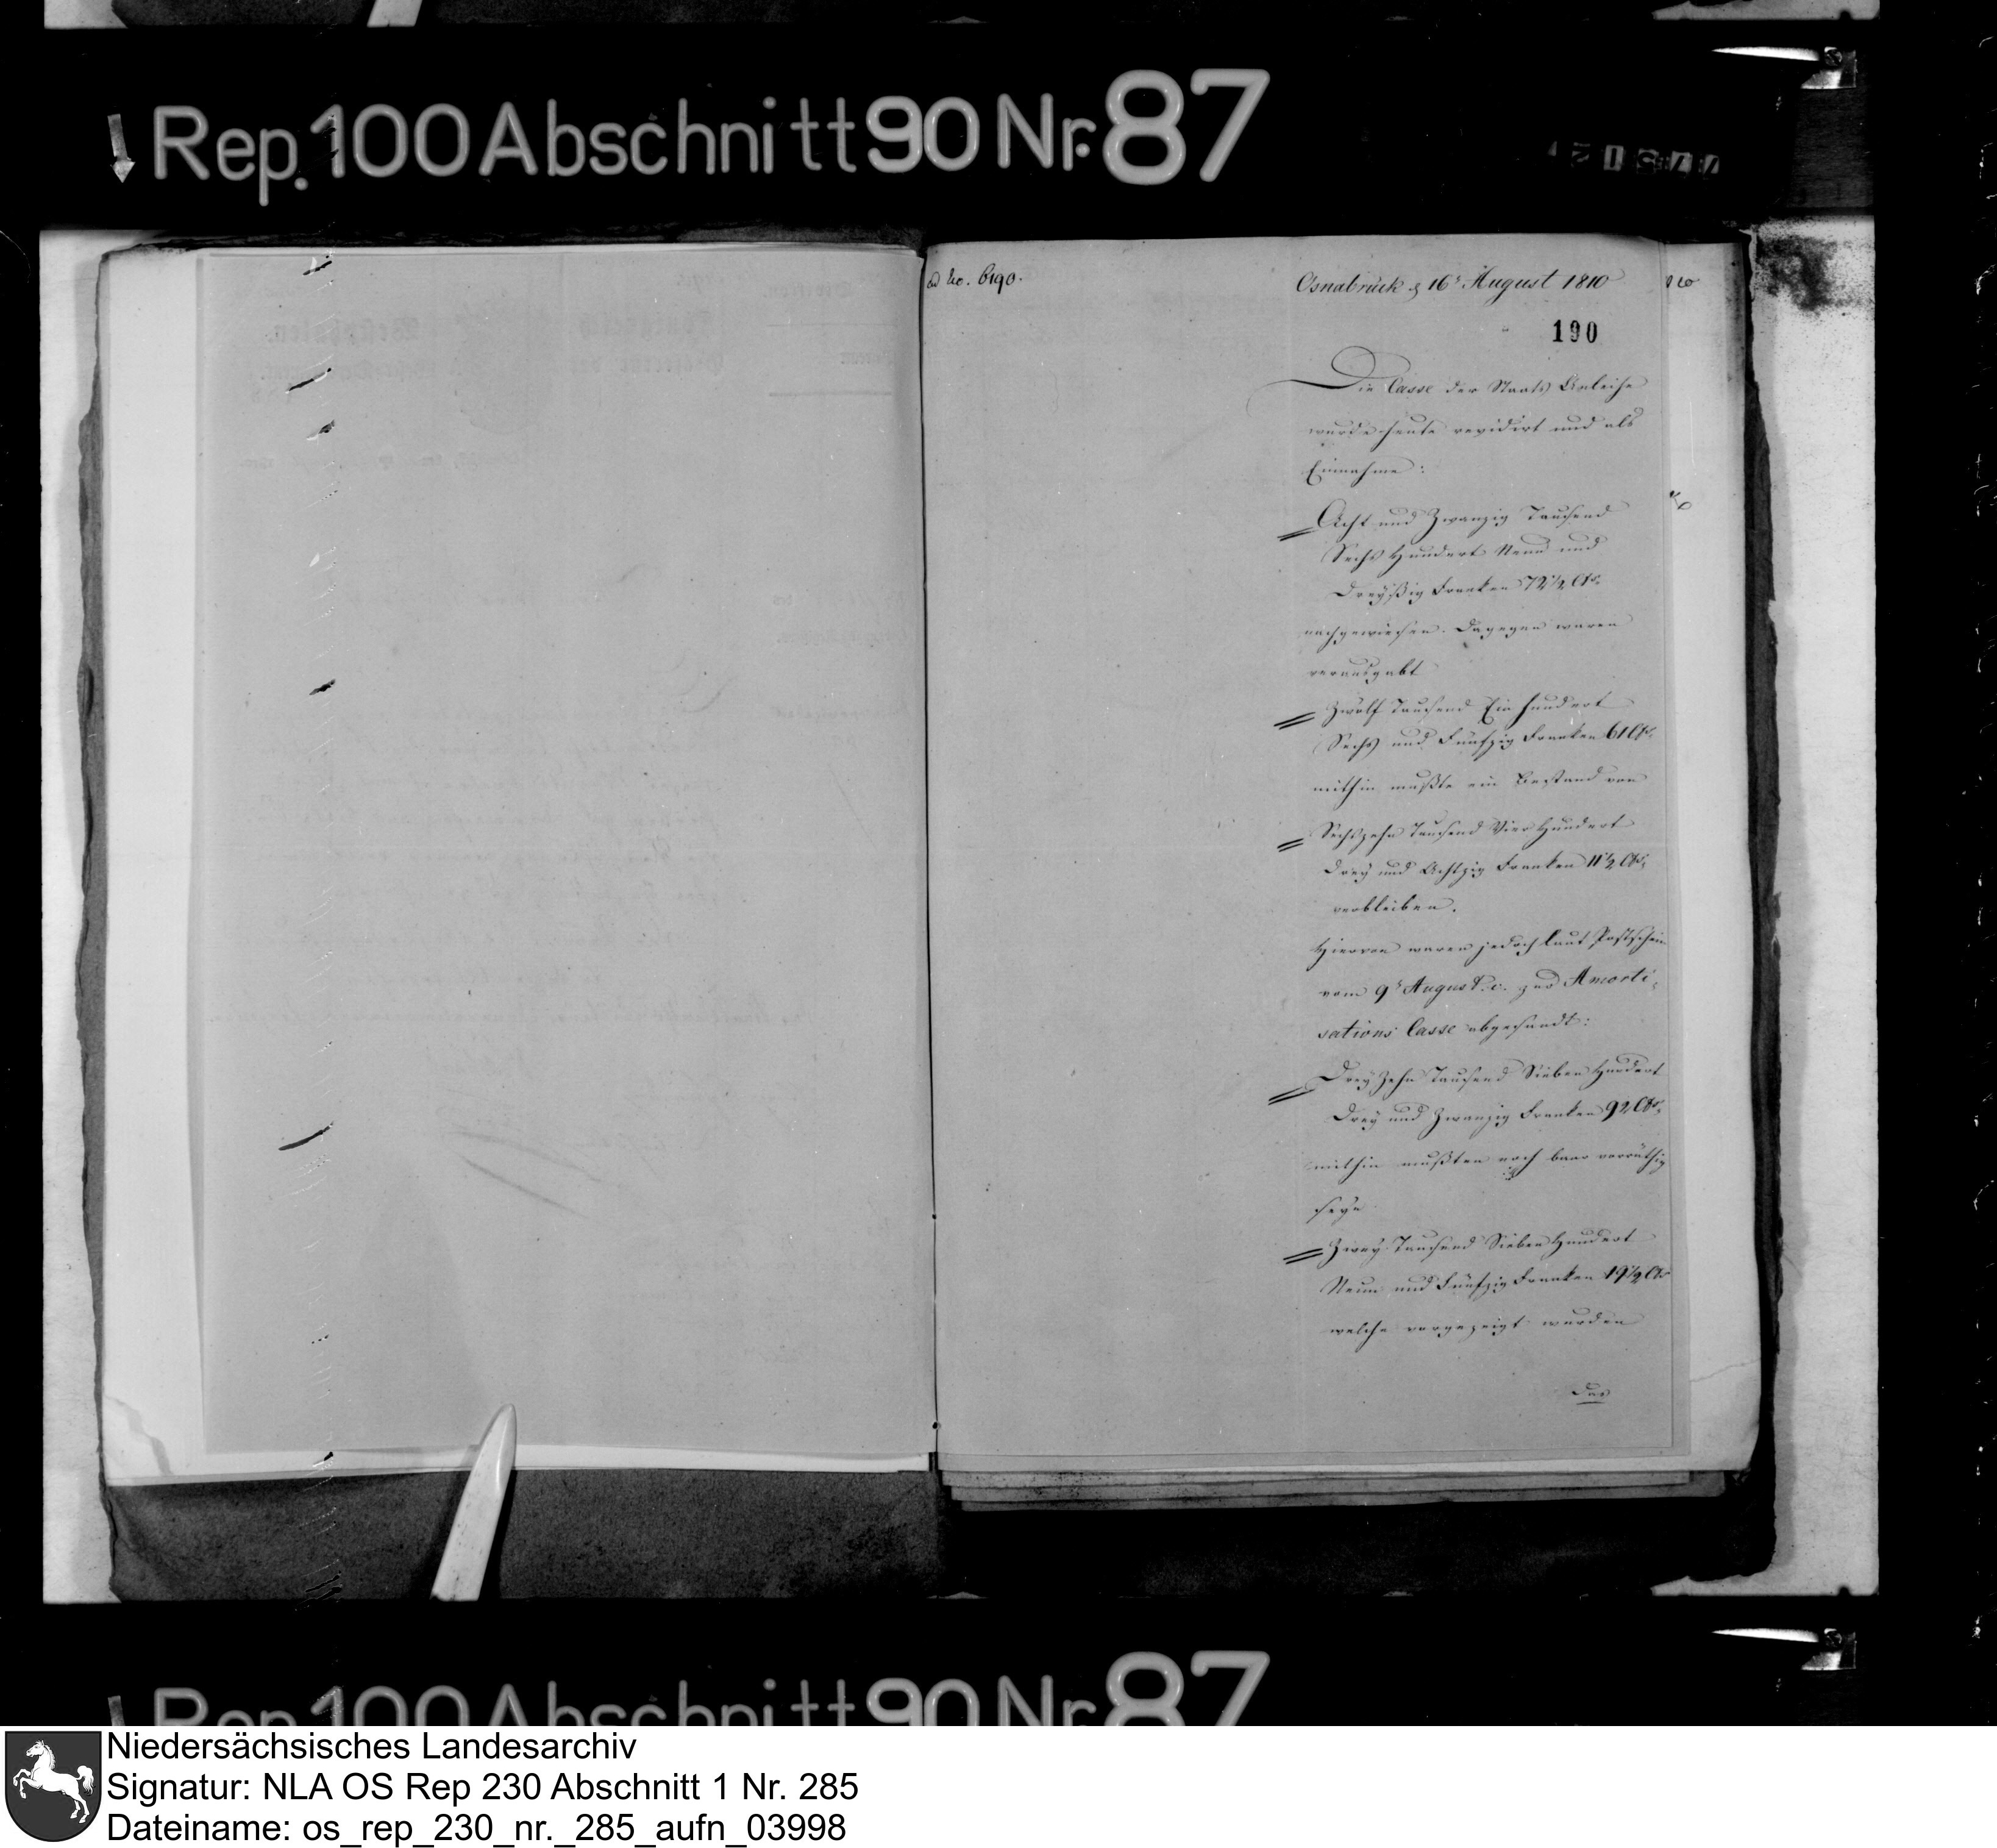 Rep. 100 Abschnitt 90 Nr. 87
ad No. 6190.
Osnabrück d 16t August 1810
190
Die Casse der Staats Anleihe
wurde heute revidirt und als
Einnahme:
Acht und Zwanzig Tausend
Sechs Hundert Neun und
Dreyßig Franken 72 1/2 Cts.
nachgewiesen. Dagegen waren
verausgabt
Zwölf Tausend Ein hundert
Sechs und Fünfzig Franken 61 Cts.
mithin mußte ein Bestand von
Sechszehn Tausend Vier Hundert
Drey und Achtzig Franken 11 1/2 Cts.
verbleiben.
Hiervon waren jedoch laut Postschein
vom 9t August. c. zur Amorti-
sations Casse abgesandt:
DreyZehn Tausend Sieben Hundert
Drey und Zwanzig Franken 92 Cts.
mithin mußten noch baar vorräthig
seyn
Zwey Tausend Sieben Hundert
Neun und Fünfzig Franken 19 1/2 Cts
welche vorgezeigt wurden
Rep. 100 Abschnitt 90 Nr. 87
Niedersächsisches Landesarchiv
Signatur: NLA OS Rep 230 Abschnitt 1 Nr. 285
Dateiname: os_rep_230_nr._285_aufn_03998